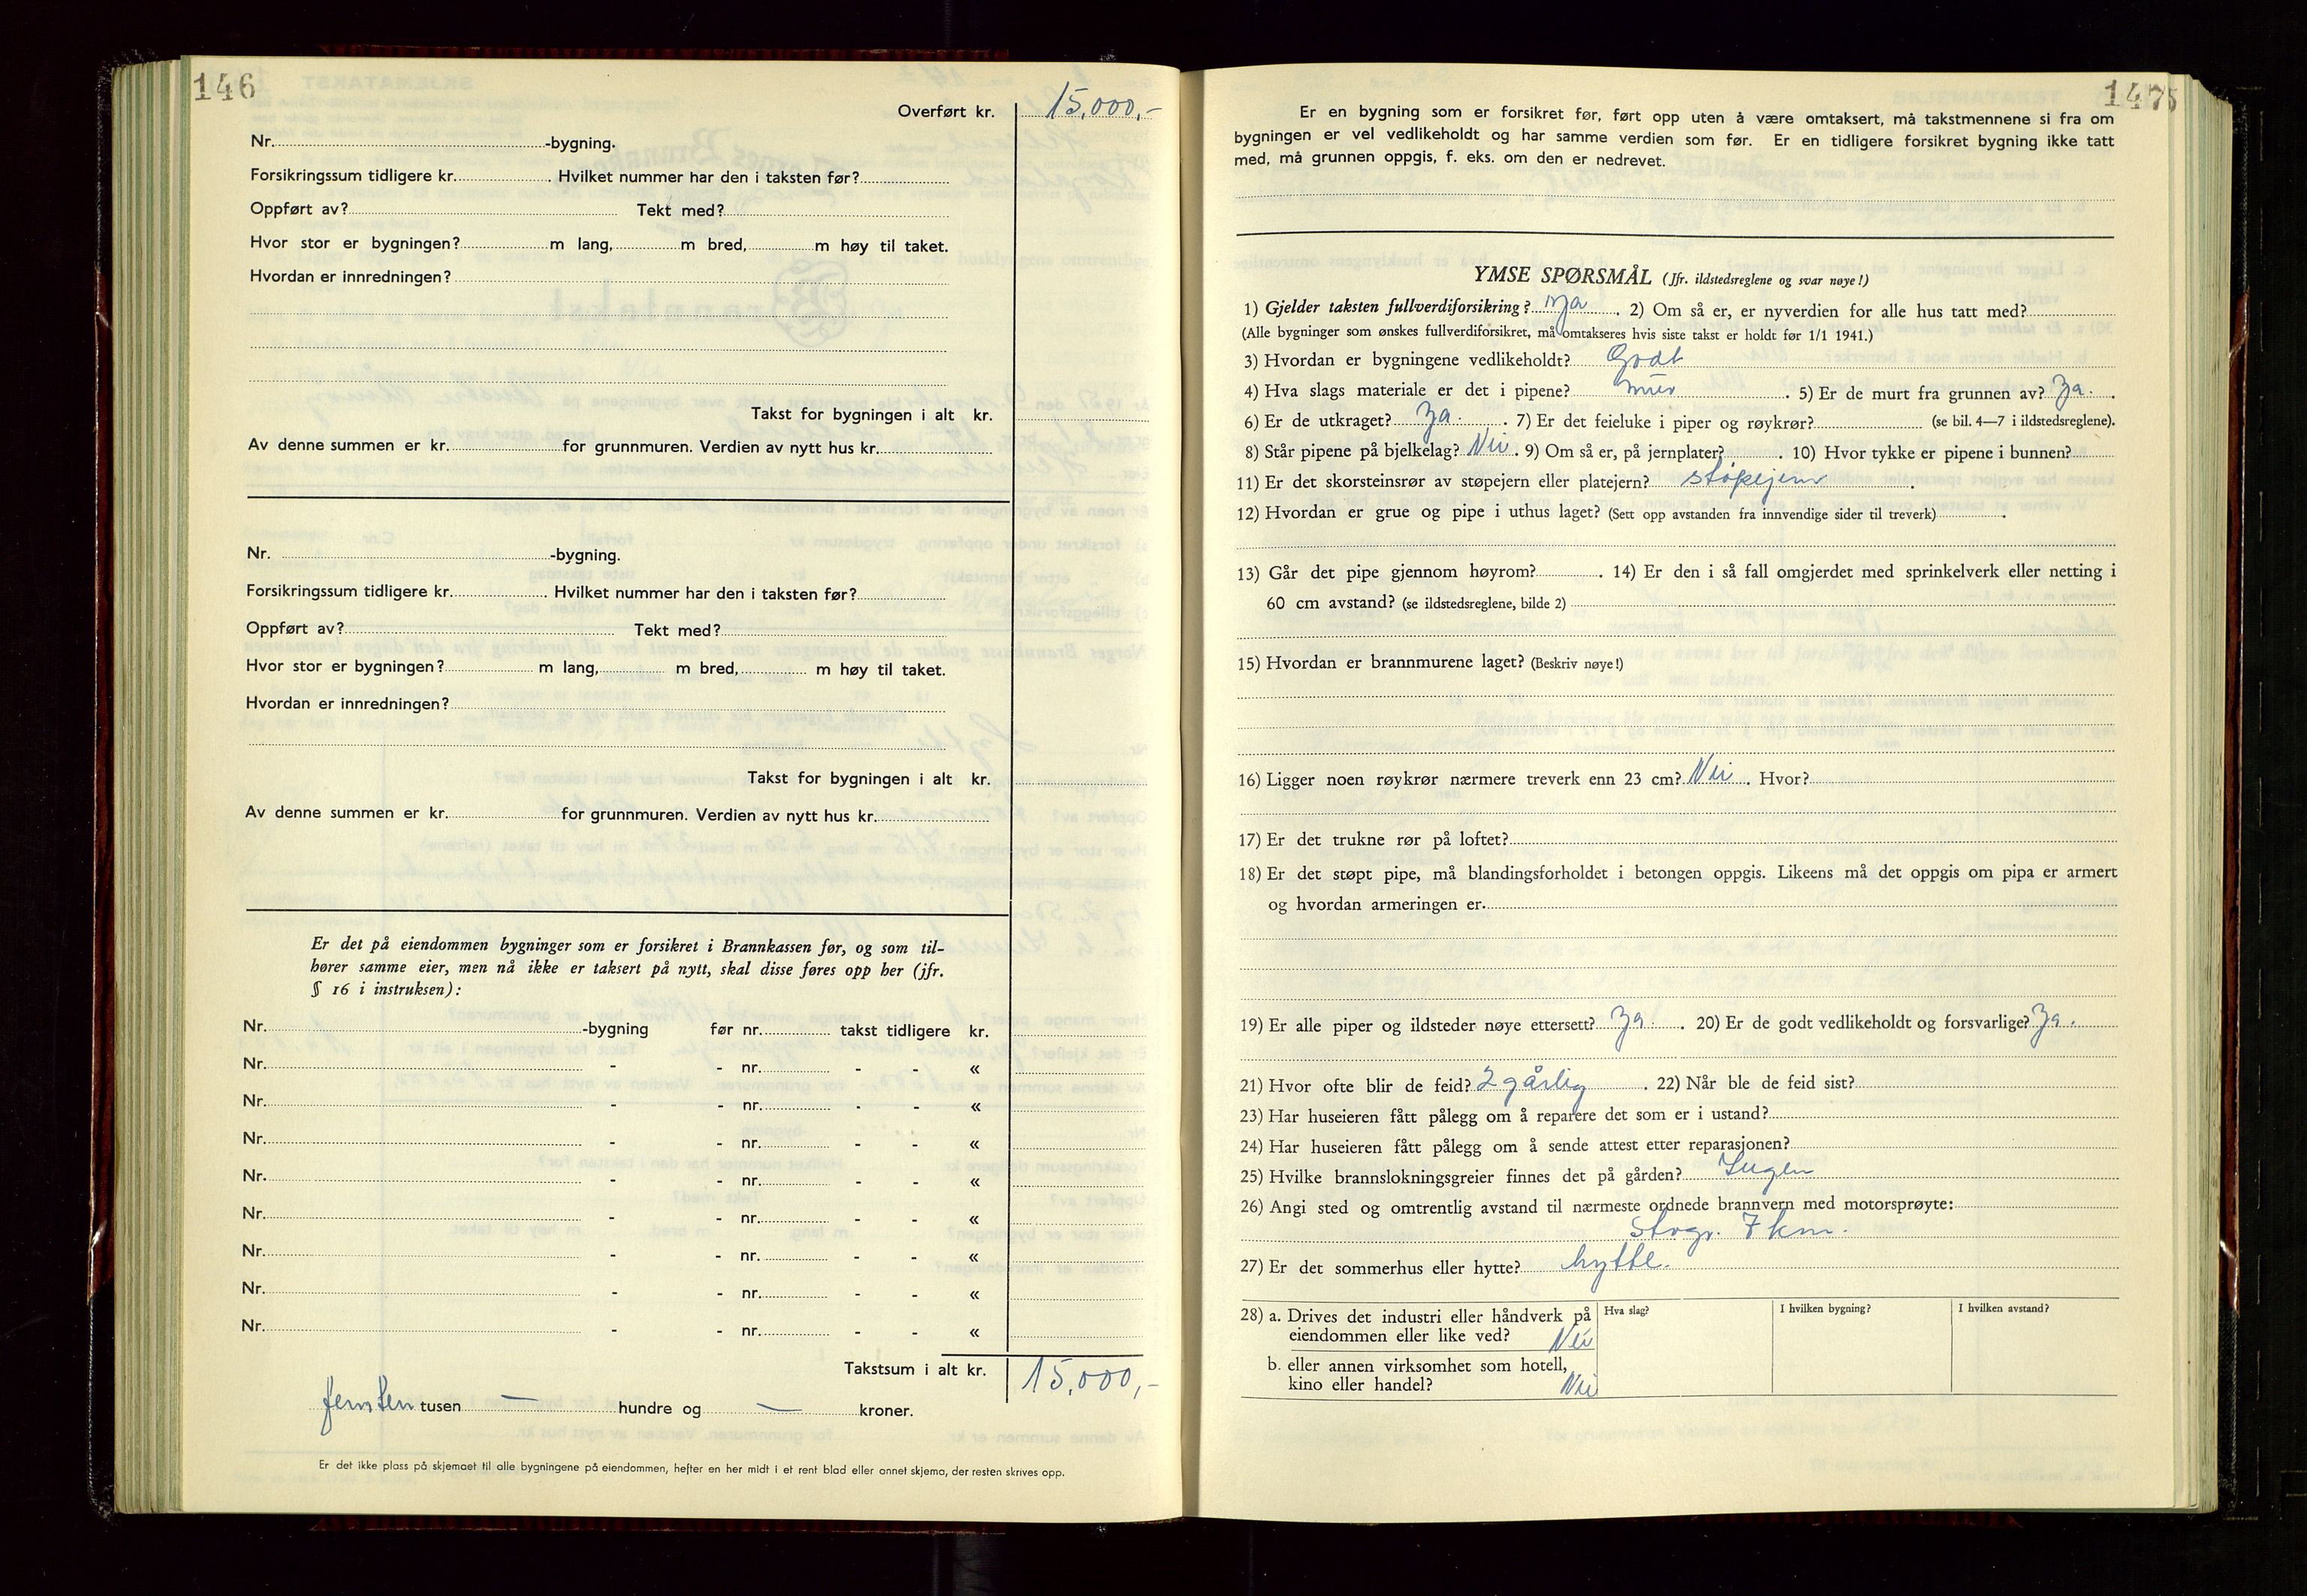 146
Overført kr. 15.000,-
Nr. -bygning.
Forsikringssum tidligere kr. . Hvilket nummer har den i taksten før?
Oppført av? Tekt med?
Hvor stor er bygningen? m lang, m bred, m høy til taket.
Hvordan er innredningen?
Takst for bygningen i alt kr.
Av denne summen er kr. for grunnmuren. Verdien av nytt hus kr.
Nr. -bygning.
Forsikringssum tidligere kr. . Hvilket nummer har den i taksten før?
Oppført av? Tekt med?
Hvor stor er bygningen? m lang, m bred, m høy til taket.
Hvordan er innredningen?
Takst for bygningen i alt kr.
Av denne summen er kr. for grunnmuren. Verdien av nytt hus kr.
Er det på eiendommen bygninger som er forsikret i Brannkassen før, og som til-
hører samme eier, men nå ikke er taksert på nytt, skal disse føres opp her (jfr.
§ 16 i instruksen):
Nr. -bygning før nr. takst tidligere kr.
Nr. - - nr. - - «
Nr. - - nr. - - «
Nr. - - nr. - - «
Nr. - - nr. - - «
Nr. - - nr. - - «
Nr. - - nr. - - «
Nr. - - nr. - - «
Nr. - - nr. - - «
Takstsum i alt kr. 15.000,-
femten tusen — hundre og — kroner.
Er det ikke plass på skjemaet til alle bygningene på eiendommen, hefter en her midt i et rent blad eller annet skjema, der resten skrives opp.
147
Er en bygning som er forsikret før, ført opp uten å være omtaksert, må takstmennene si fra om
bygningen er vel vedlikeholdt og har samme verdien som før. Er en tidligere forsikret bygning ikke tatt
med, må grunnen oppgis, f. eks. om den er nedrevet.
YMSE SPØRSMÅL (Jfr. ildstedsreglene og svar nøye!)
1) Gjelder taksten fullverdiforsikring? Ja . 2) Om så er, er nyverdien for alle hus tatt med?
(Alle bygninger som ønskes fullverdiforsikret, må omtakseres hvis siste takst er holdt før 1/1 1941.)
3) Hvordan er bygningene vedlikeholdt? Godt
4) Hva slags materiale er det i pipene? mur . 5) Er de murt fra grunnen av? Ja.
6) Er de utkraget? Ja. . 7) Er det feieluke i piper og røykrør? (se bil. 4—7 i ildstedsreglene).
8) Står pipene på bjelkelag? Nei . 9) Om så er, på jernplater? . 10) Hvor tykke er pipene i bunnen?
11) Er det skorsteinsrør av støpejern eller platejern? støpejern .
12) Hvordan er grue og pipe i uthus laget? (Sett opp avstanden fra innvendige sider til treverk) .
13) Går det pipe gjennom høyrom? . 14) Er den i så fall omgjerdet med sprinkelverk eller netting i
60 cm avstand? (se ildstedsreglene, bilde 2)
15) Hvordan er brannmurene laget? (Beskriv nøye!)
16) Ligger noen røykrør nærmere treverk enn 23 cm? Nei . Hvor?
17) Er det trukne rør på loftet?
18) Er det støpt pipe, må blandingsforholdet i betongen oppgis. Likeens må det oppgis om pipa er armert
og hvordan armeringen er.
19) Er alle piper og ildsteder nøye ettersett? Ja . 20) Er de godt vedlikeholdt og forsvarlige? Ja.
21) Hvor ofte blir de feid? 2 g årlig . 22) Når ble de feid sist?
23) Har huseieren fått pålegg om å reparere det som er i ustand?
24) Har huseieren fått pålegg om å sende attest etter reparasjonen?
25) Hvilke brannslokningsgreier finnes det på gården? Ingen
26) Angi sted og omtrentlig avstand til nærmeste ordnede brannvern med motorsprøyte:
Stvgr. 7 km.
27) Er det sommerhus eller hytte? hytte.
28) a. Drives det industri eller håndverk på Hva slag? I hvilken bygning? I hvilken avstand?
eiendommen eller like ved? Nei
b. eller annen virksomhet som hotell,
kino eller handel? Nei